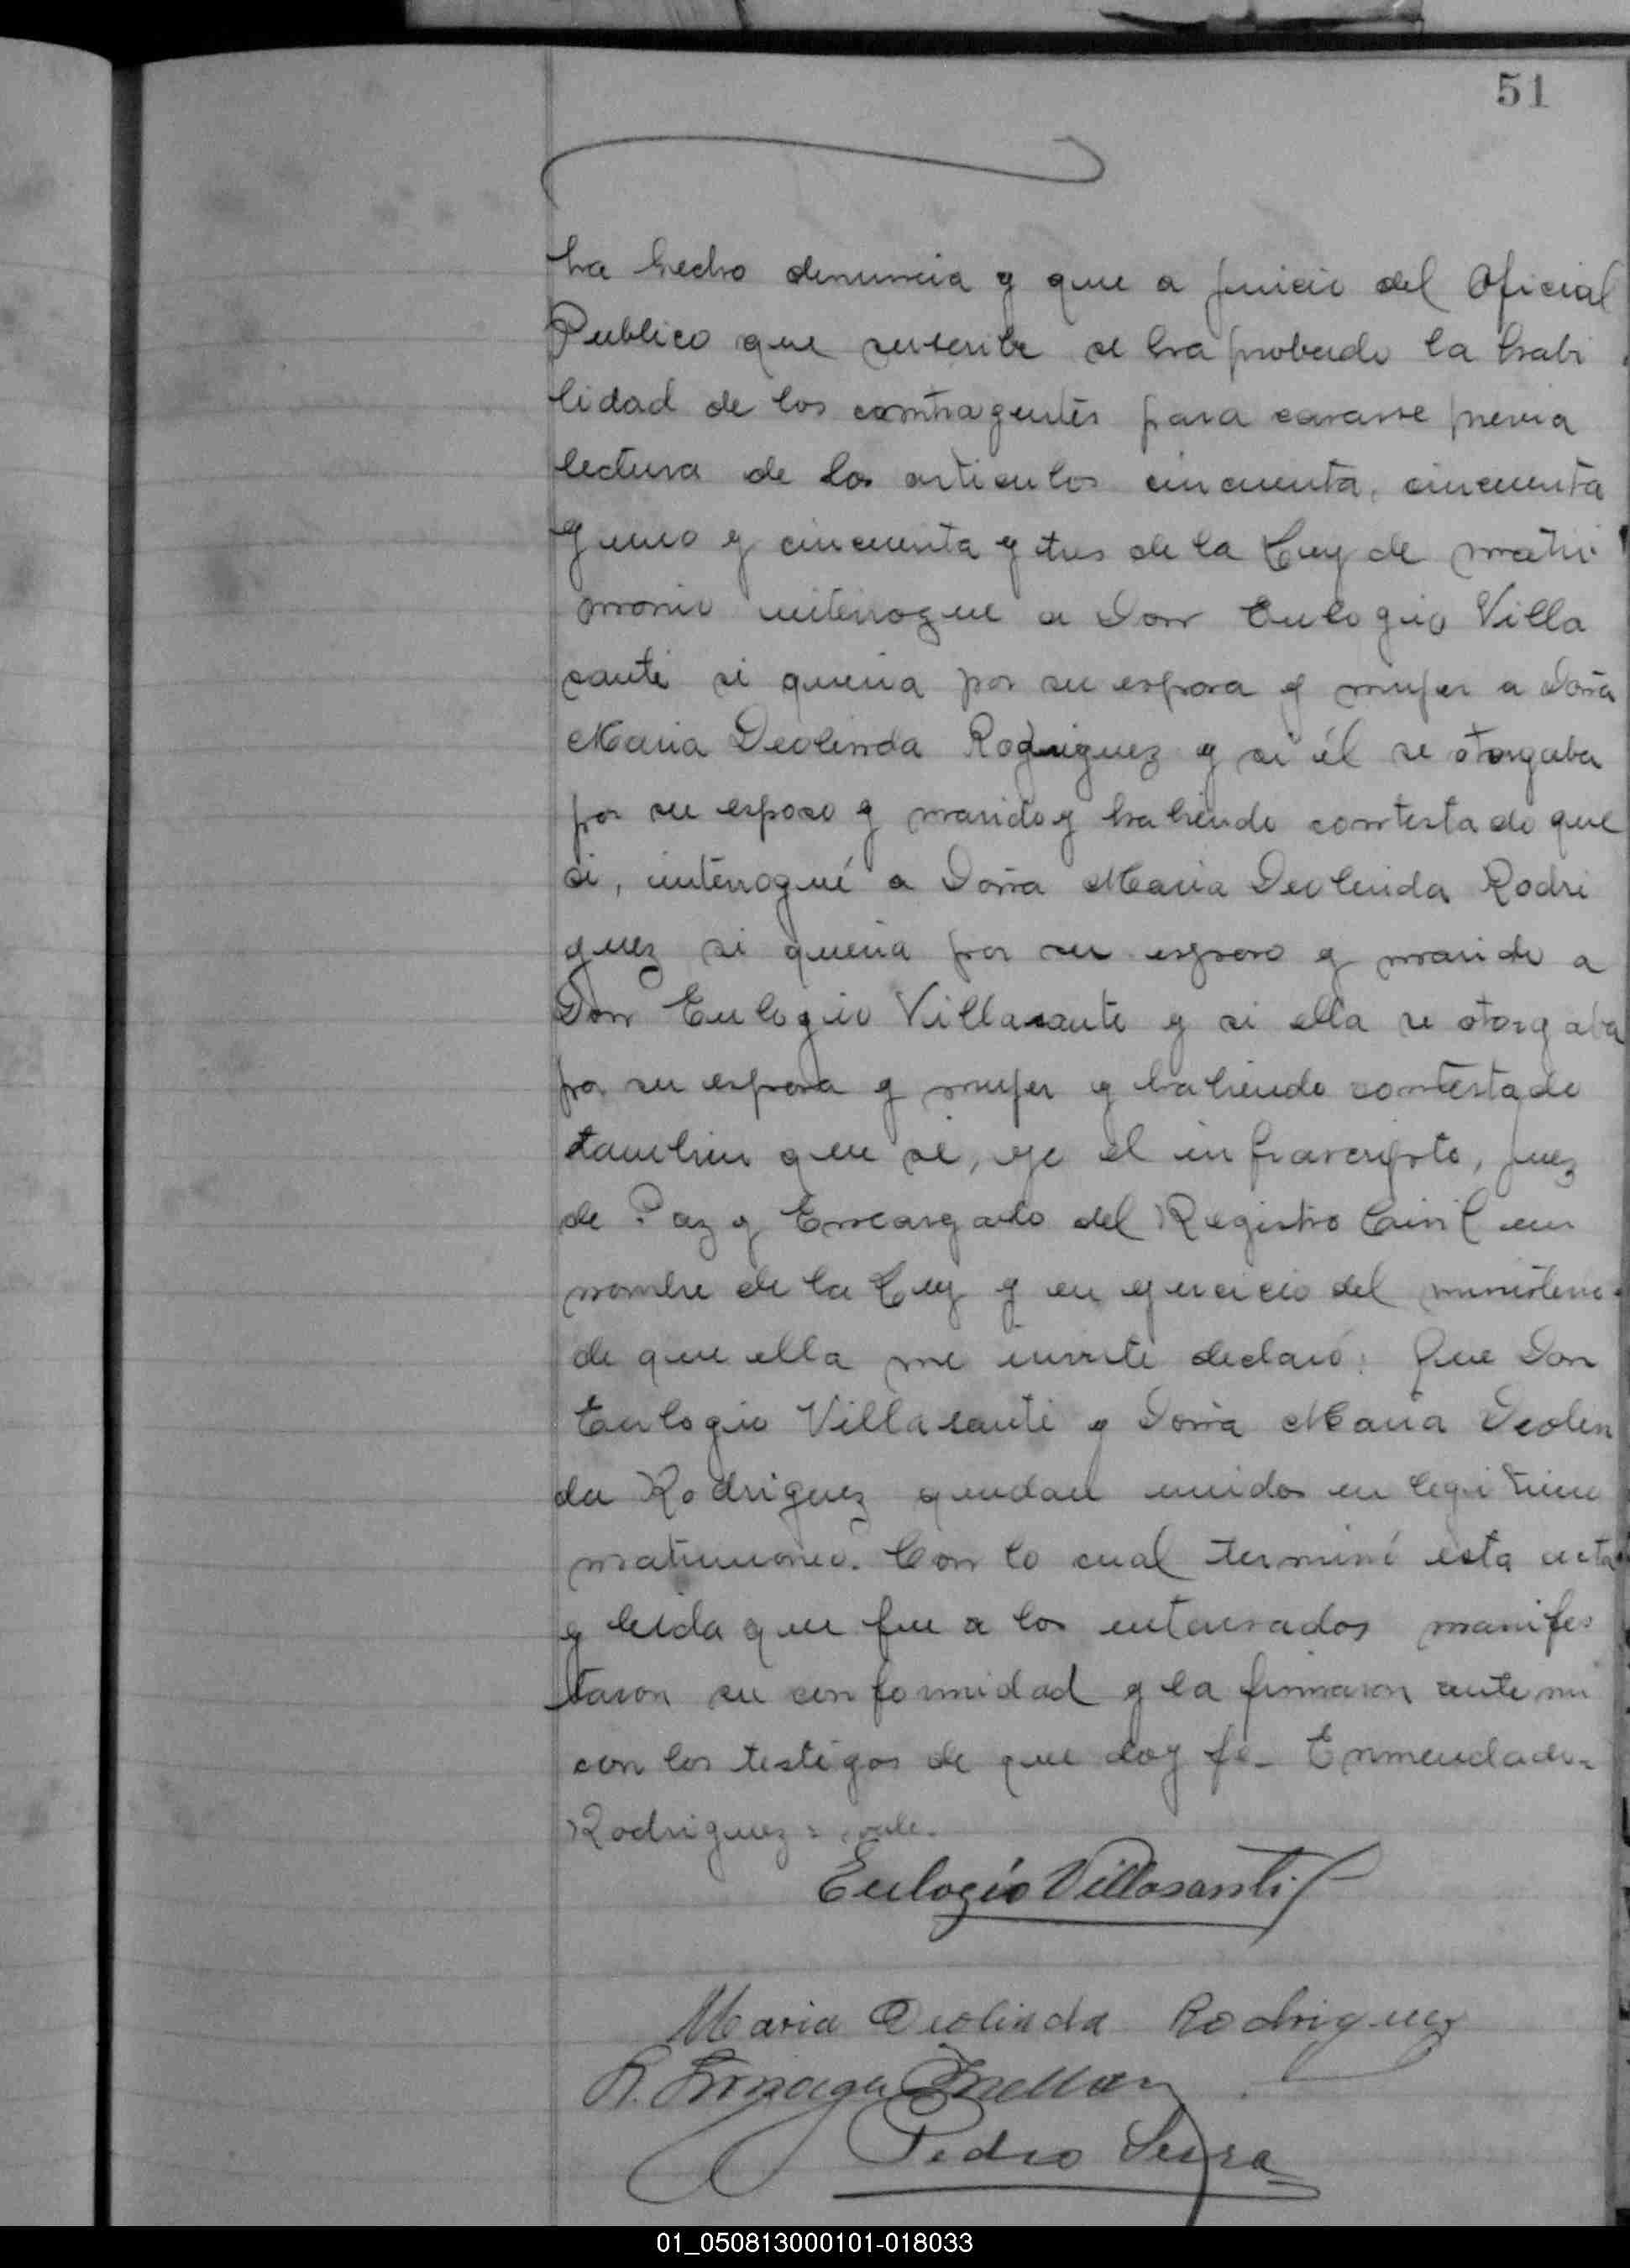 51
ha hecho denuncia y que a juicio del Oficial
Publico que suscribe se ha probado la habi
lidad de los contragentes para casarse previa
lectura de los articulos cincuenta, cincuenta
y uno y cincuenta y tres de la Ley de matri
monio interrogue a Don Eulogio Villa
sante si queria por su esposa y mujer a Doña
Maria Deolinda Rodriguez y si él se otorgaba
por su esposo y marido y habiendo contestado que
si, interrogué a Doña Maria Deolinda Rodri
guez si queria por su esposo y marido a
Don Eulogio Villasante y si ella se otorgaba
por su esposa y mujer y habiendo contestado
tambien que si, yo el infrascripto, Juez
de Paz y Encargado del Registro Civil en
nombre de la Ley y en ejercicio del ministerio
de que ella me inviste declaró: Que Don
Eulogio Villasanti y Doña Maria Deolin
da Rodriguez quedan unidos en legitimo
matrimonio. Con lo cual terminé esta acta
y leida que fue a los interesados manifes
taron su conformidad y la firmaron ante mi
con los testigos de que doy fe_ Enmendado=
Rodriguez = vale.
Eulogio Villasanti
Maria Deolinda Rodriguez
R.
Pedro Serra
01_050813000101-018033